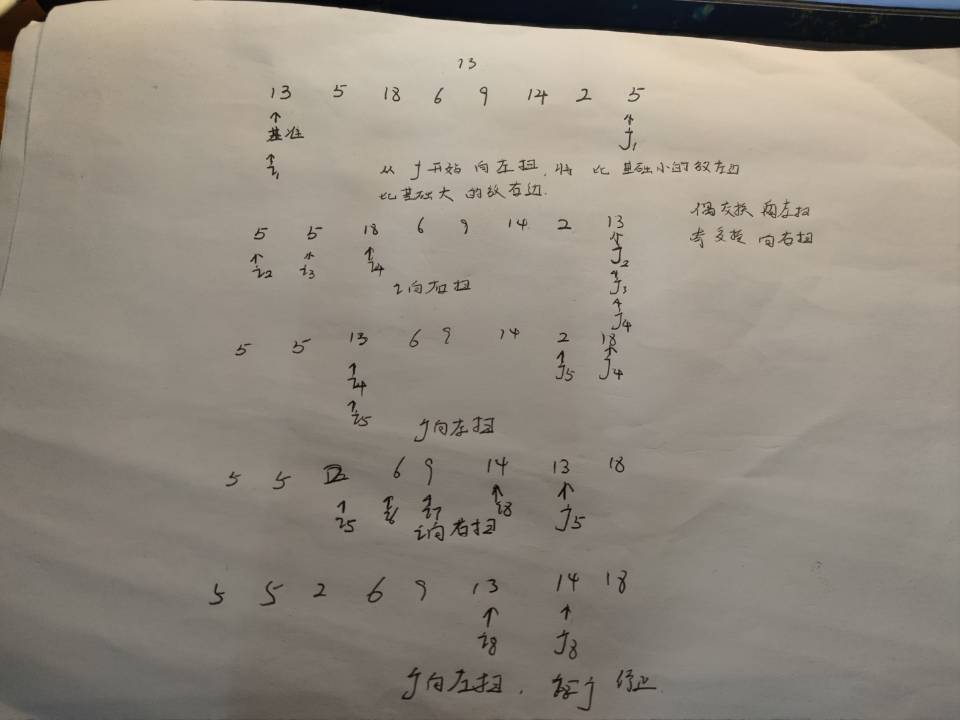 13
13 5 18 6 9 14 2 5
↑ ↑
基准 j1
↑
i1
从 j开始 向左扫,将 比 基础小的放左边
比基础大 的放右边.
偶交换 向左扫
奇交换 向右扫
5 5 18 6 9 14 2 13
↑ ↑ ↑ ↑
i2 i3 i4 j2
↑
j3
↑
j4
i向右扫
5 5 13 6 9 14 2 18
↑ ↑ ↑
i4 j5 j4
↑
i5
j向左扫
5 5 2 6 9 14 13 18
↑ ↑ ↑ ↑ ↑
i5 i6 i7 i8 j5
i向右扫
5 5 2 6 9 13 14 18
↑ ↑
i8 j8
j向左扫, 停止